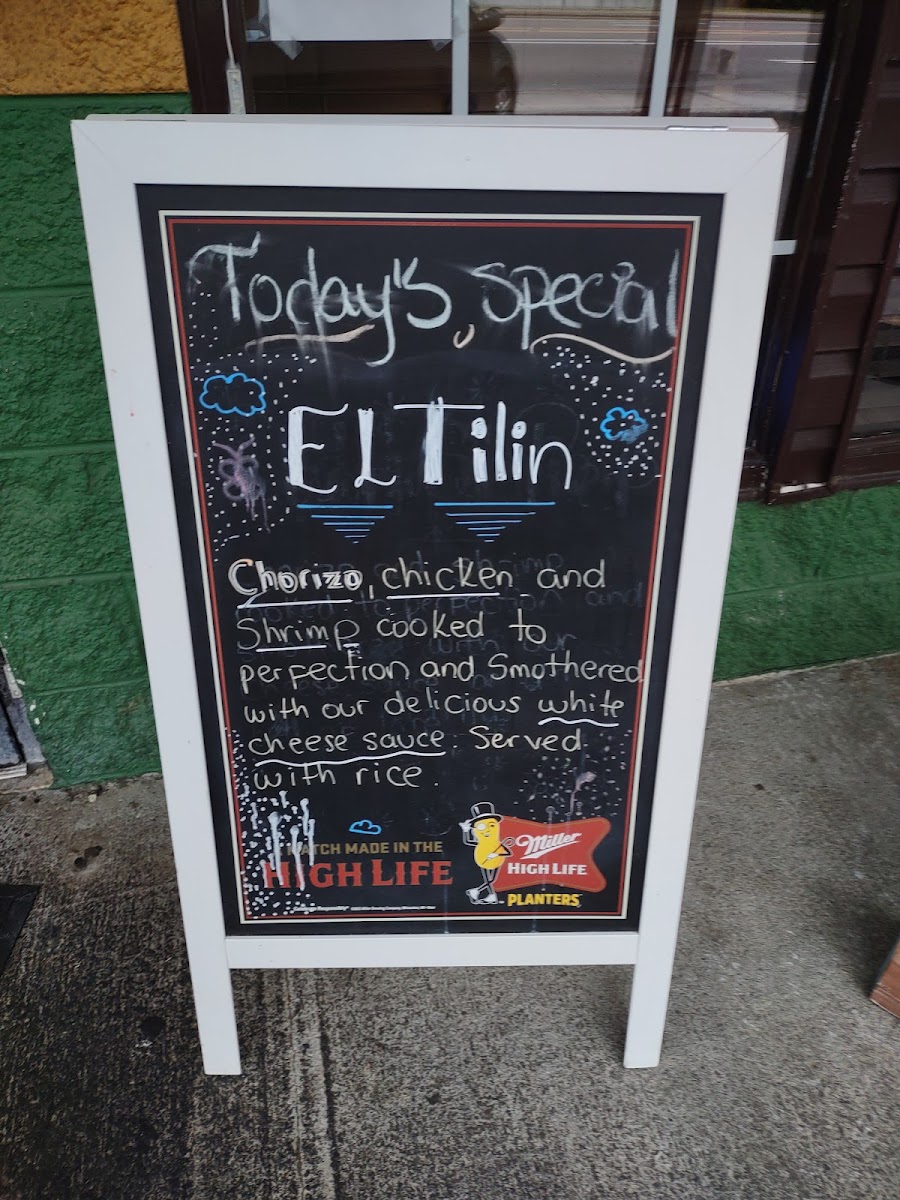 Today's Special
EL Tilin
Chorizo, chicken and
Shrimp cooked to
perfection and Smothered
with our delicious white
cheese sauce. Served
with rice.
MATCH MADE IN THE
HIGH LIFE
Miller
HIGH LIFE
PLANTERS